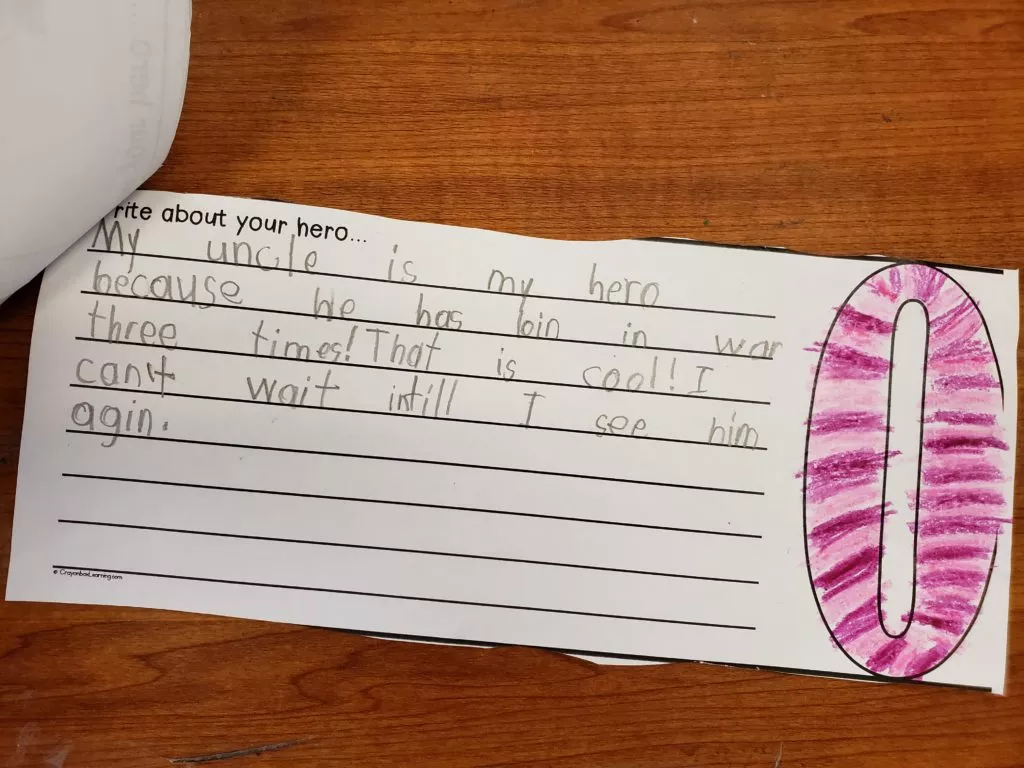 rite about your hero...
My uncle is my hero
because he has bin in war
three times! That is cool! I
can't wait intill I see him
agin.
© CrayonboxLearning.com
your hero...
O